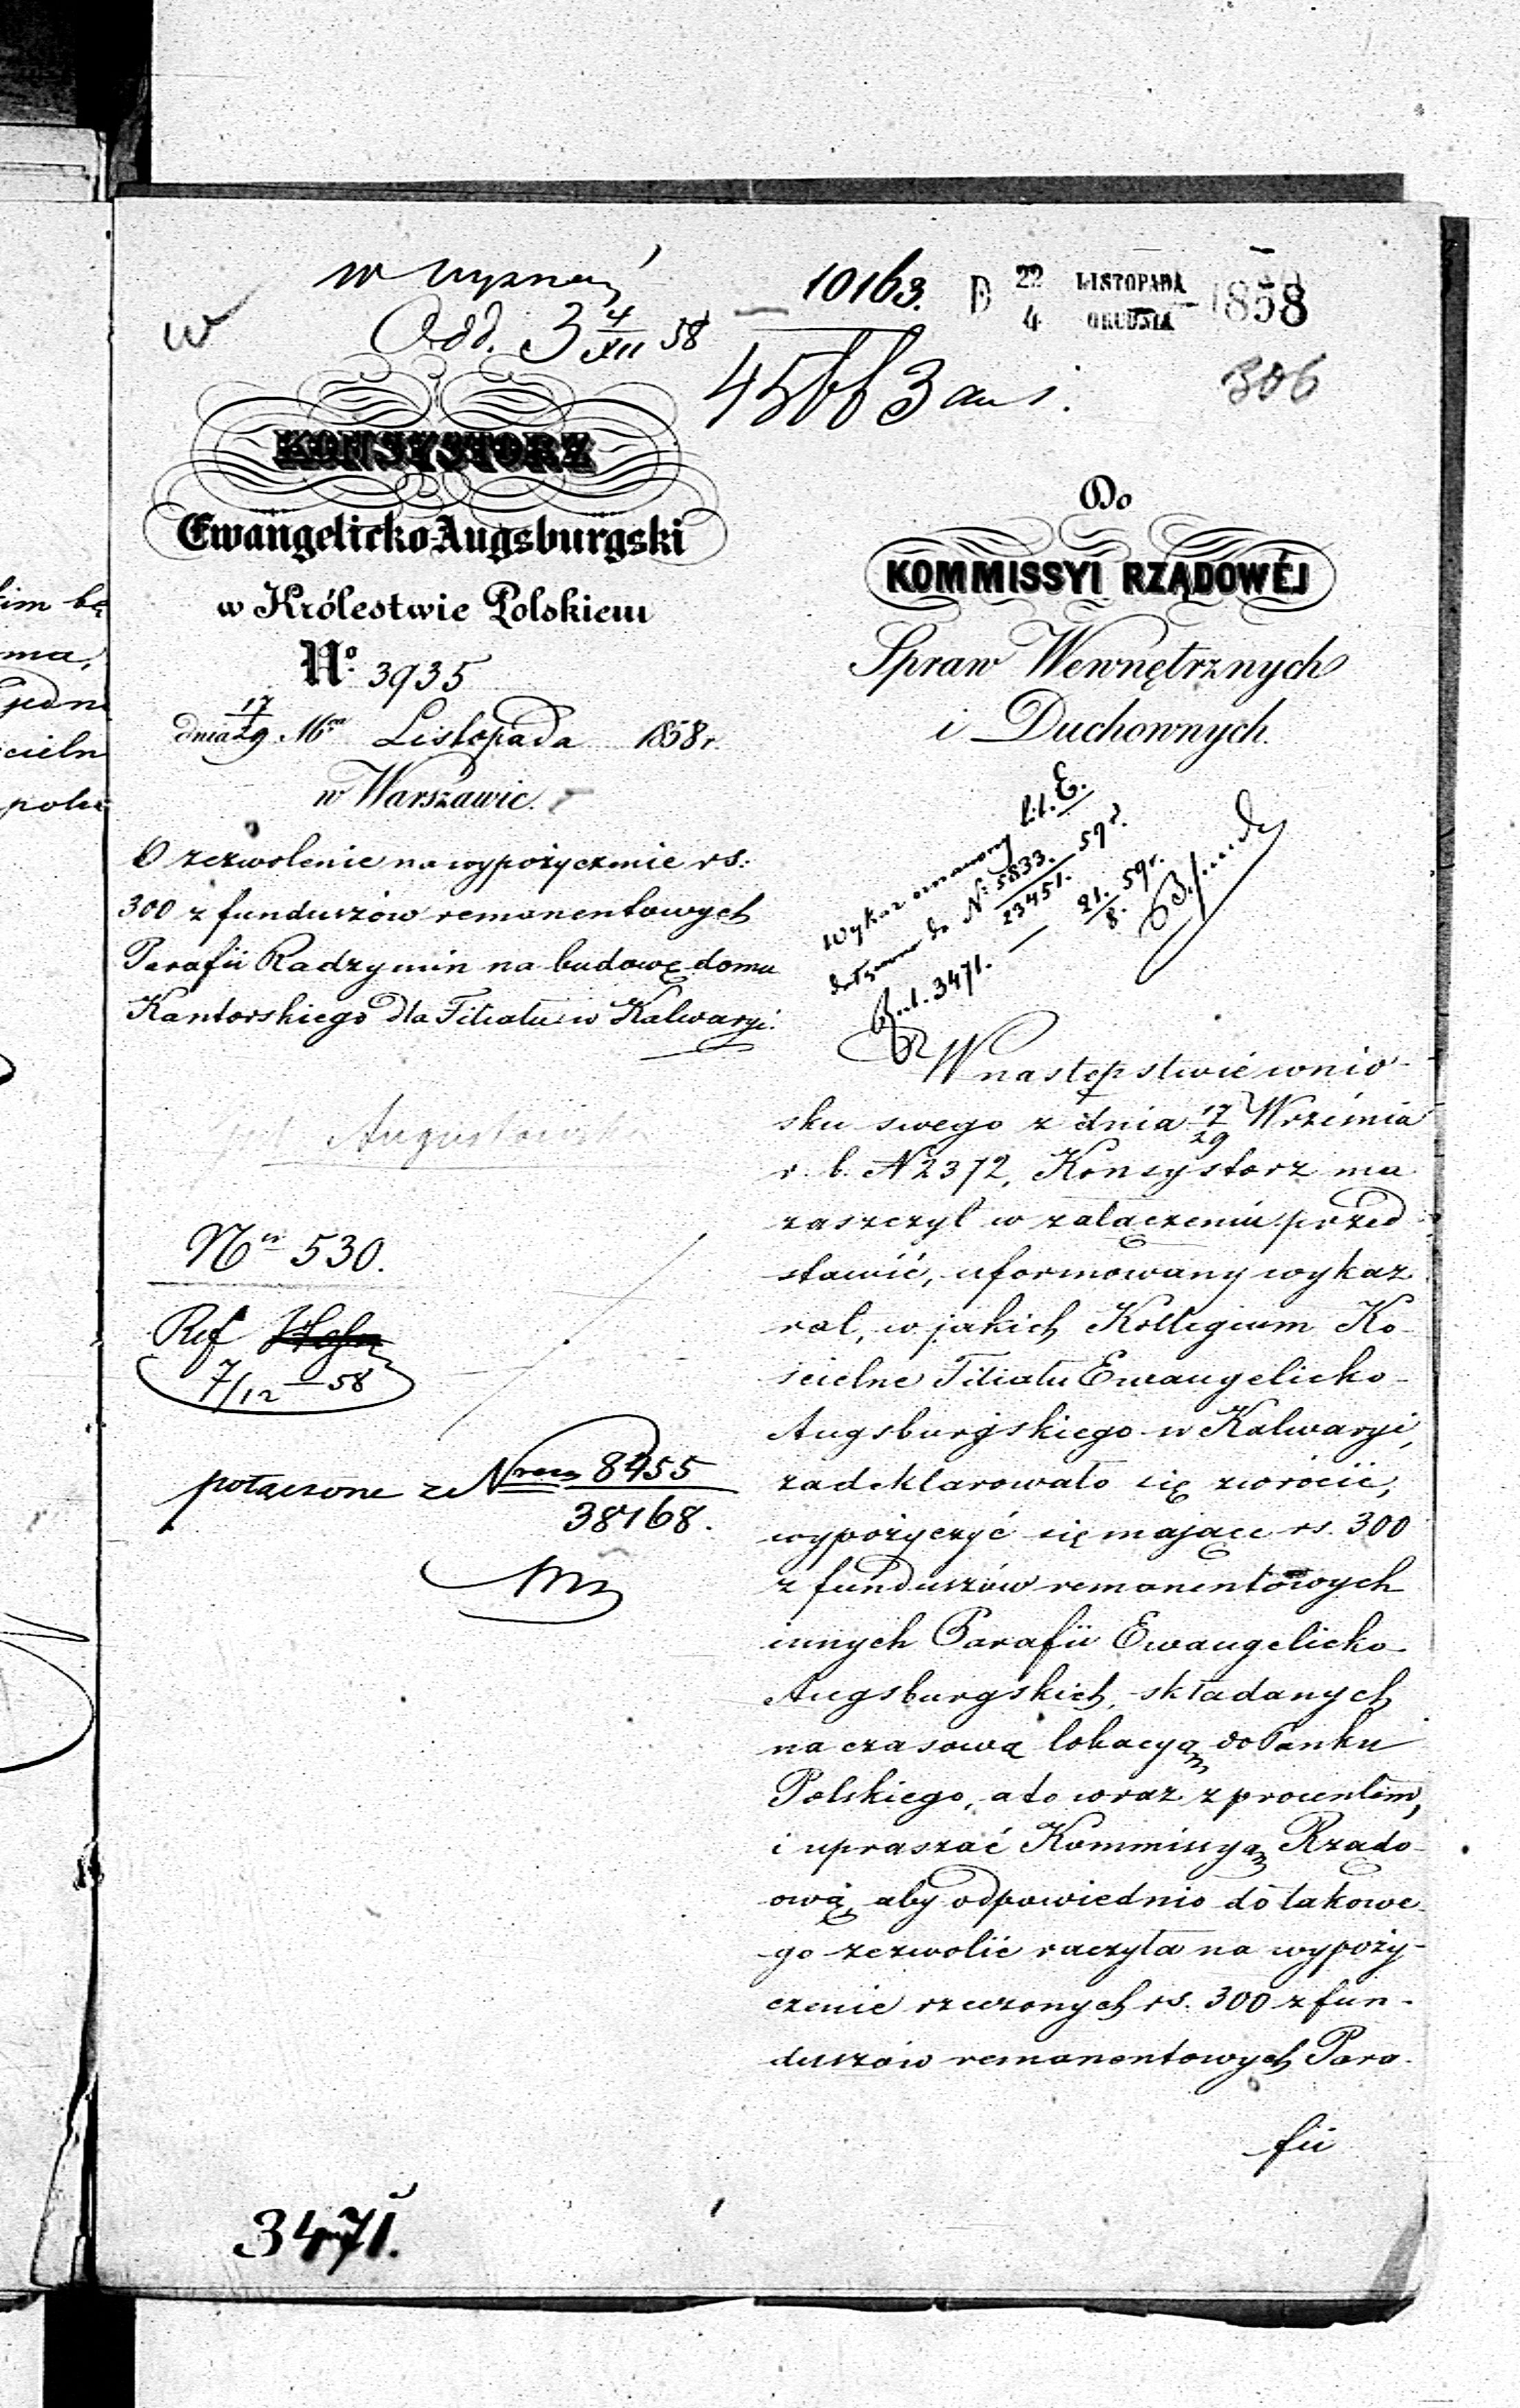 w
10163.
D 22/4 LISTOPADA GRUDNIA 1858
Odd. 3 4/XII 58
306
KONSYSTORZ
Ewangelicko-Augsburgski
w Królestwie Polskiem
No. 3935
dnia 17/29 Mca Listopada 1858 r.
w Warszawie.
O zezwolenie na wypożyczenie rs:
300 z funduszów remanentowych
Parafii Radzymin na budowę domu
Kantorskiego dla Filiału w Kalwaryi.
Augustowska
Nr 530.
Ref
7/12 – 58
połączone ze Nrem 8455
38168.
3471.
Do
KOMMISSYI RZĄDOWÉJ
Spraw Wewnętrznych
i Duchownych.
Wykaz lit. E.
do No 5833. 59 r.
23451.
3471. — 21./8. 59 r.
W następstwie wnio-
sku swego z dnia 17/29 Września
r. b. N 2372, Konsystorz ma
zaszczyt w załączeniu przed-
stawić, uformowany wykaz
rat, w jakich Kollegium Ko-
ścielne Filiału Ewangelicko-
Augsburgskiego w Kalwaryi,
zadeklarowało się zwrócić,
wypożyczyć się mające rs. 300
z funduszów remanentowych
innych Parafii Ewangelicko-
Augsburgskich, składanych
na czasową lokacyą do Banku
Polskiego, a to wraz z procentem,
i upraszać Kommissyą Rządo-
wą, aby odpowiednio do takowe-
go zezwolić raczyła na wypoży-
czenie rzeczonych rs. 300 z fun-
duszów remanentowych Para-
fii
kim bę
ma,
jedn
cieln